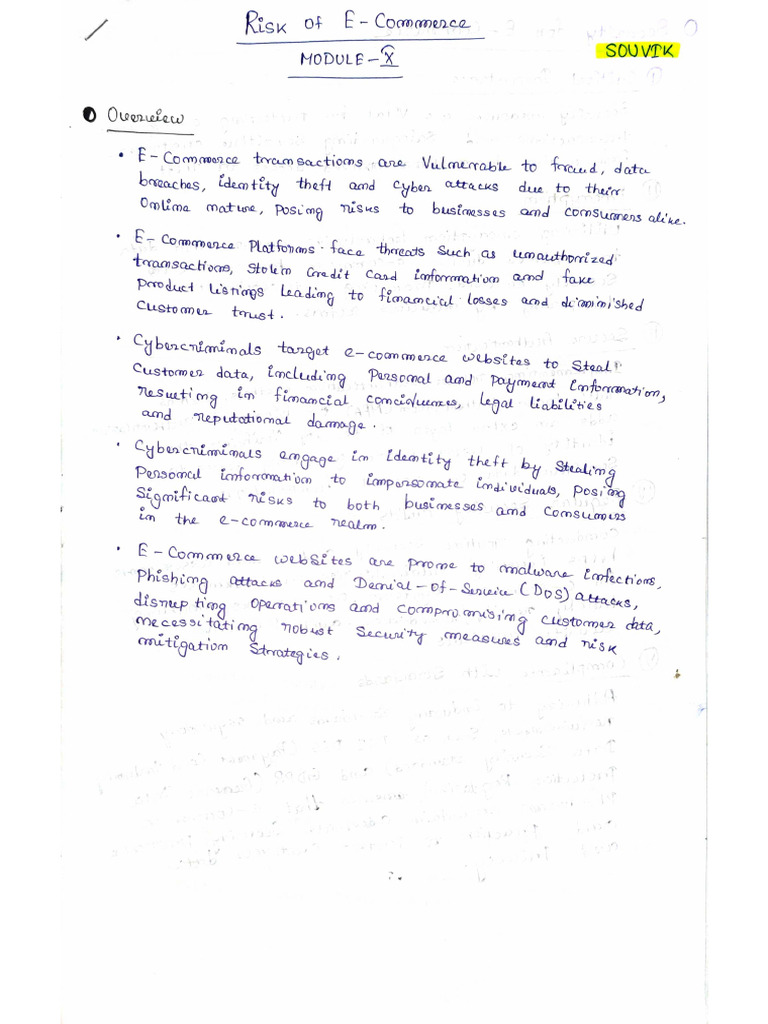 Risk of E-Commerce
MODULE-X
SOUVIK
Overview
• E-Commerce transactions are Vulnerable to fraud, data
breaches, identity theft and cyber attacks due to their
Online nature, posing risks to businesses and consumers alike.
• E-Commerce Platforms face threats such as unauthorized
transactions, Stolen Credit Card information and fake
product listings leading to financial losses and diminished
customer trust.
• Cybercriminals target e-commerce websites to Steal
Customer data, including Personal and payment information,
resulting in financial conciquences, legal liabilities
and reputational damage.
• Cybercriminals engage in identity theft by Stealing
Personal information to impersonate individuals, posing
Significant risks to both businesses and consumers
in the e-commerce realm.
• E-Commerce websites are prone to malware infections,
Phishing attacks and Denial-of-Service (DoS) attacks,
disrupting operations and compromising customer data,
necessitating robust Security measures and risk
mitigation Strategies.